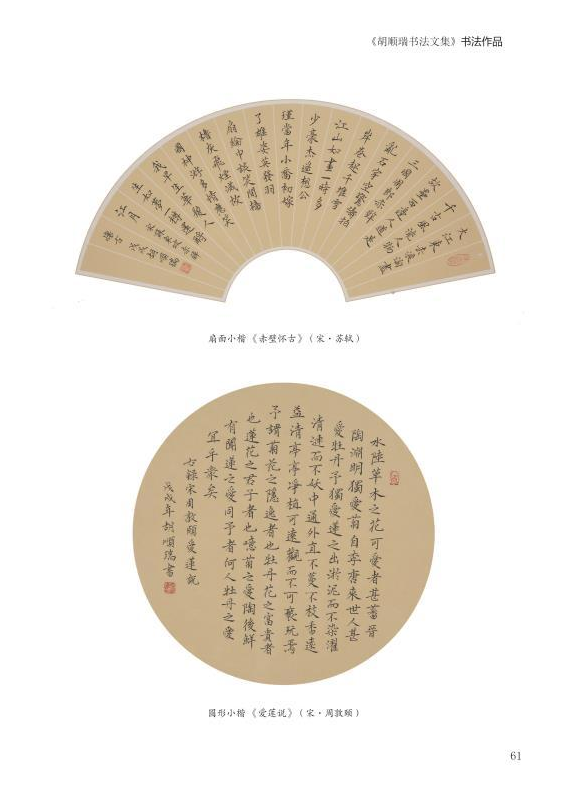 《胡顺瑞书法文集》书法作品
大江東去浪淘盡
千古風流人物
故壘西邊人道是
三國周郎赤壁
亂石穿空驚濤拍
岸卷起千堆雪
江山如畫一時多
少豪杰遙想公
瑾當年小喬初嫁
了雄姿英發羽
扇綸巾談笑間檣
櫓灰飛煙滅故
國神游多情應笑
我早生華發人
生如夢一樽還酹
江月 宋蘇東坡赤壁
懷古 戊戌胡順瑞
扇面小楷《赤壁怀古》（宋·苏轼）
水陸草木之花可愛者甚蕃晉
陶淵明獨愛菊自李唐來世人甚
愛牡丹予獨愛蓮之出淤泥而不染濯
清漣而不妖中通外直不蔓不枝香遠
益清亭亭淨植可遠觀而不可褻玩焉
予謂菊花之隱逸者也牡丹花之富貴者
也蓮花之君子者也噫菊之愛陶後鮮
有聞蓮之愛同予者何人牡丹之愛
宜乎衆矣
右錄宋周敦頤愛蓮說
戊戌年胡順瑞書
圆形小楷《爱莲说》（宋·周敦颐）
61